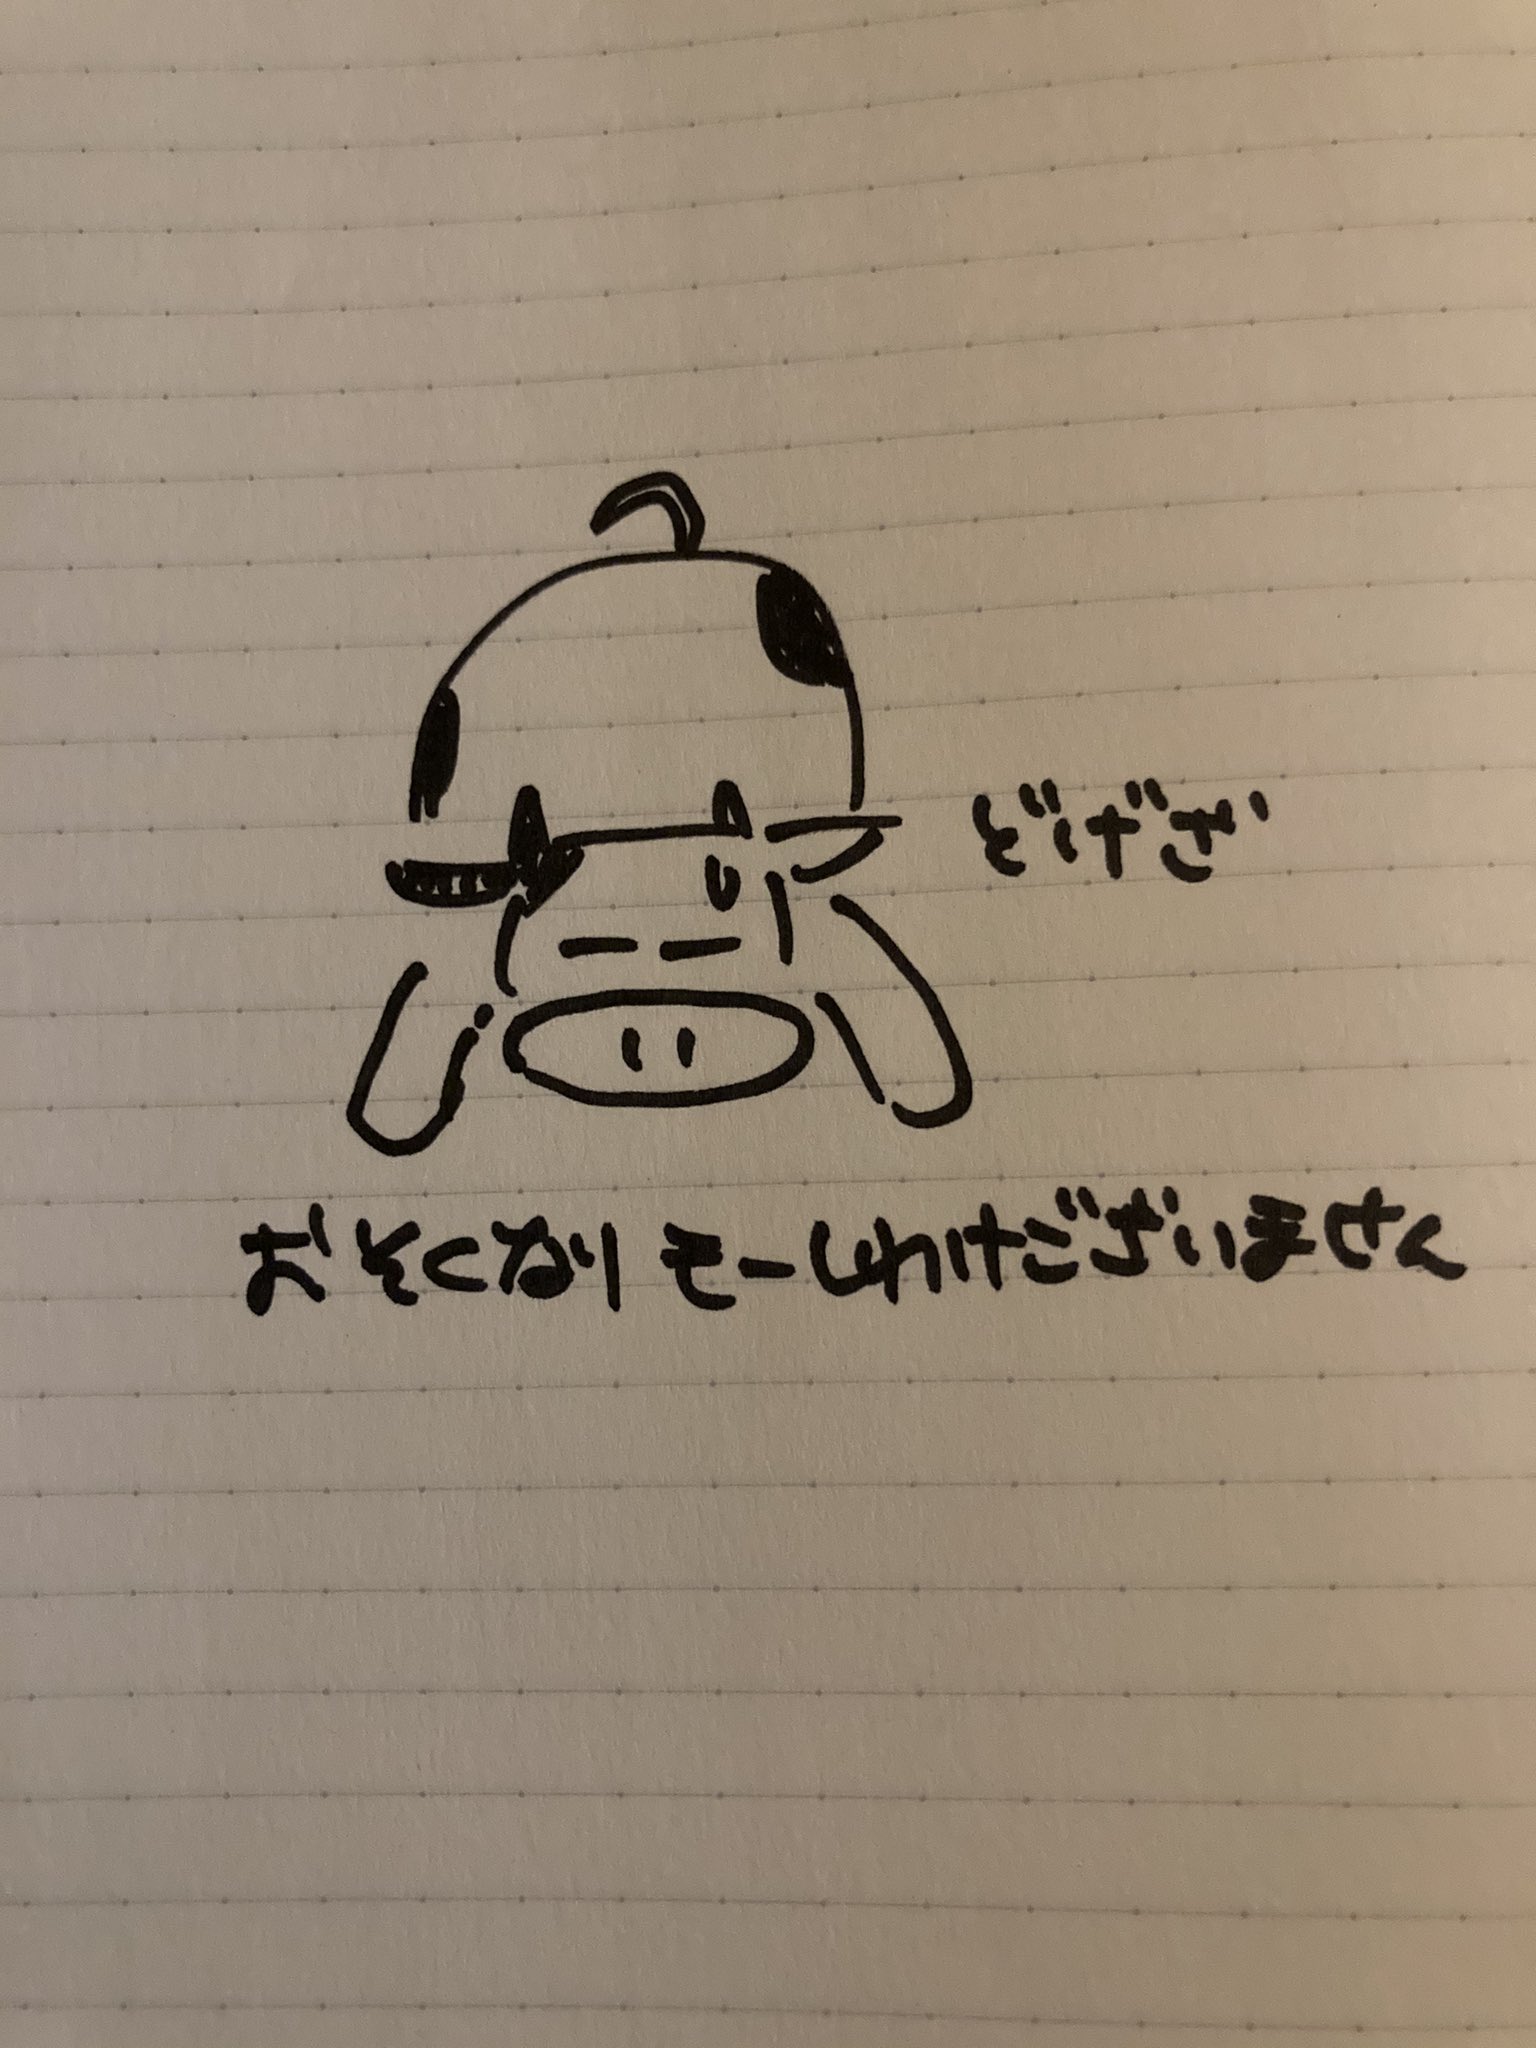 どげざ
おそくなりモーしわけございません